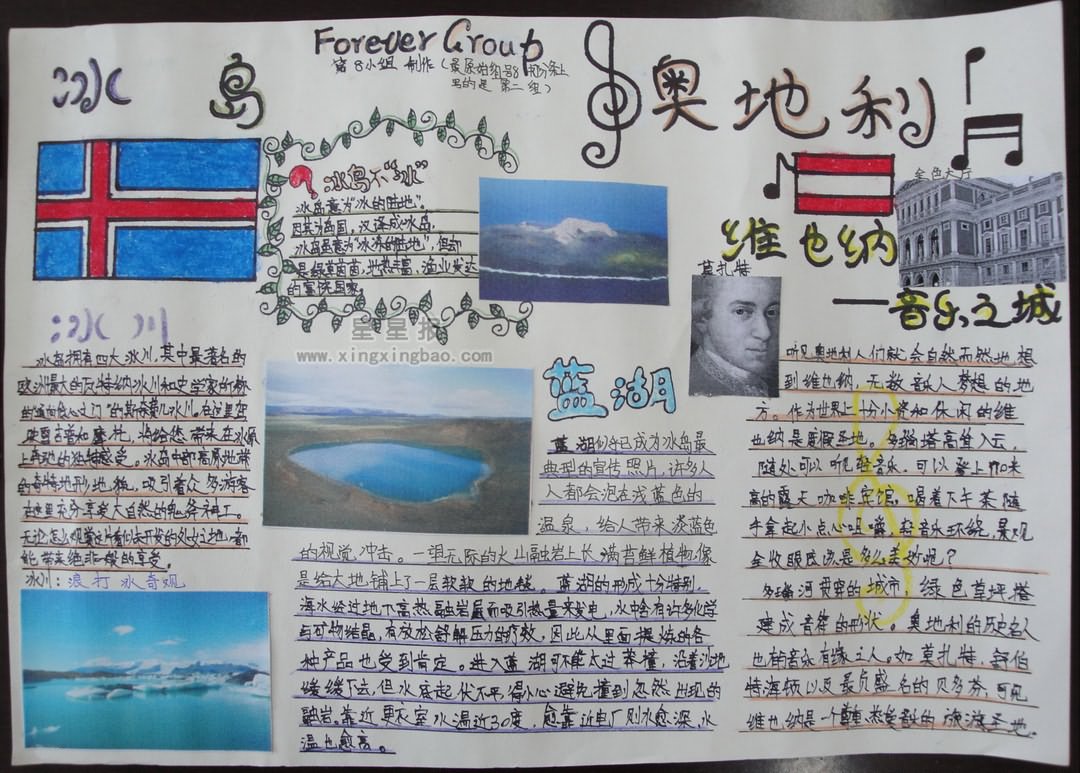 Forever Group
第8小组 制作(最原始组号8 部分条上
写的是 第二组)
冰 岛
奥地利
冰岛不"冰"
冰岛意为"冰的陆地".
因其为岛国,汉译成冰岛.
冰岛虽意为"冰冻的陆地",但却
是绿草茵茵,地热丰富,渔业发达
的富饶国家.
星星报
www.xingxingbao.com
冰川
冰岛拥有四大冰川,其中最著名的
欧洲最大的瓦特纳冰川和史学家的教
的"通向地心之门"的斯奈菲尔冰川。在这里在
上两地的独特感受。冰岛中部高原地带
的奇特地形地貌,吸引着众多游客
在这里充分享受大自然的鬼斧神工。
能带来绝非一般的享受。
冰川:浪打冰奇观
蓝湖
蓝湖似乎已成为冰岛最
典型的宣传照片,许多人
人都会泡在浅蓝色的
温泉,给人带来淡蓝色
的视觉冲击。一望无际的火山融岩上长满苔鲜植物像
是给大地铺上了一层软软的地毯。蓝湖的形成十分特别,
海水经过地下高热融岩层而吸引热量来发电,水中含有许多化学
与矿物结晶,有放松舒解压力的疗效,因此从里面提炼的各
种产品也受到肯定。进入蓝湖可不能太过莽撞,沿着沙地
缓缓下去,但水底起伏不平,得小心避免撞到忽然出现的
融岩。靠近更衣室水温近30度,愈靠近电厂则水愈深、水
温也愈高。
金色大厅
维也纳
莫扎特
——音乐之城
听见奥地利人们就会自然而然地想
到维也纳,无数音乐人梦想的地
方。作为世界上十分小资和休闲的维
也纳是度假圣地。多瑙塔高耸入云,
随处可以听见轻音乐,可以登上170来
高的露天咖啡宾馆,喝着下午茶随
手拿起小点心咀嚼,轻音乐环绕,景观
全收眼底该是多么美妙呢?
多瑙河贯穿的城市,绿色草坪搭
建成音符的形状。奥地利的历史名人
也有音乐有缘之人。如莫扎特,舒伯
特海顿以及最负盛名的贝多芬,可见
维也纳是一个尊重,热爱音乐的旅游圣地。